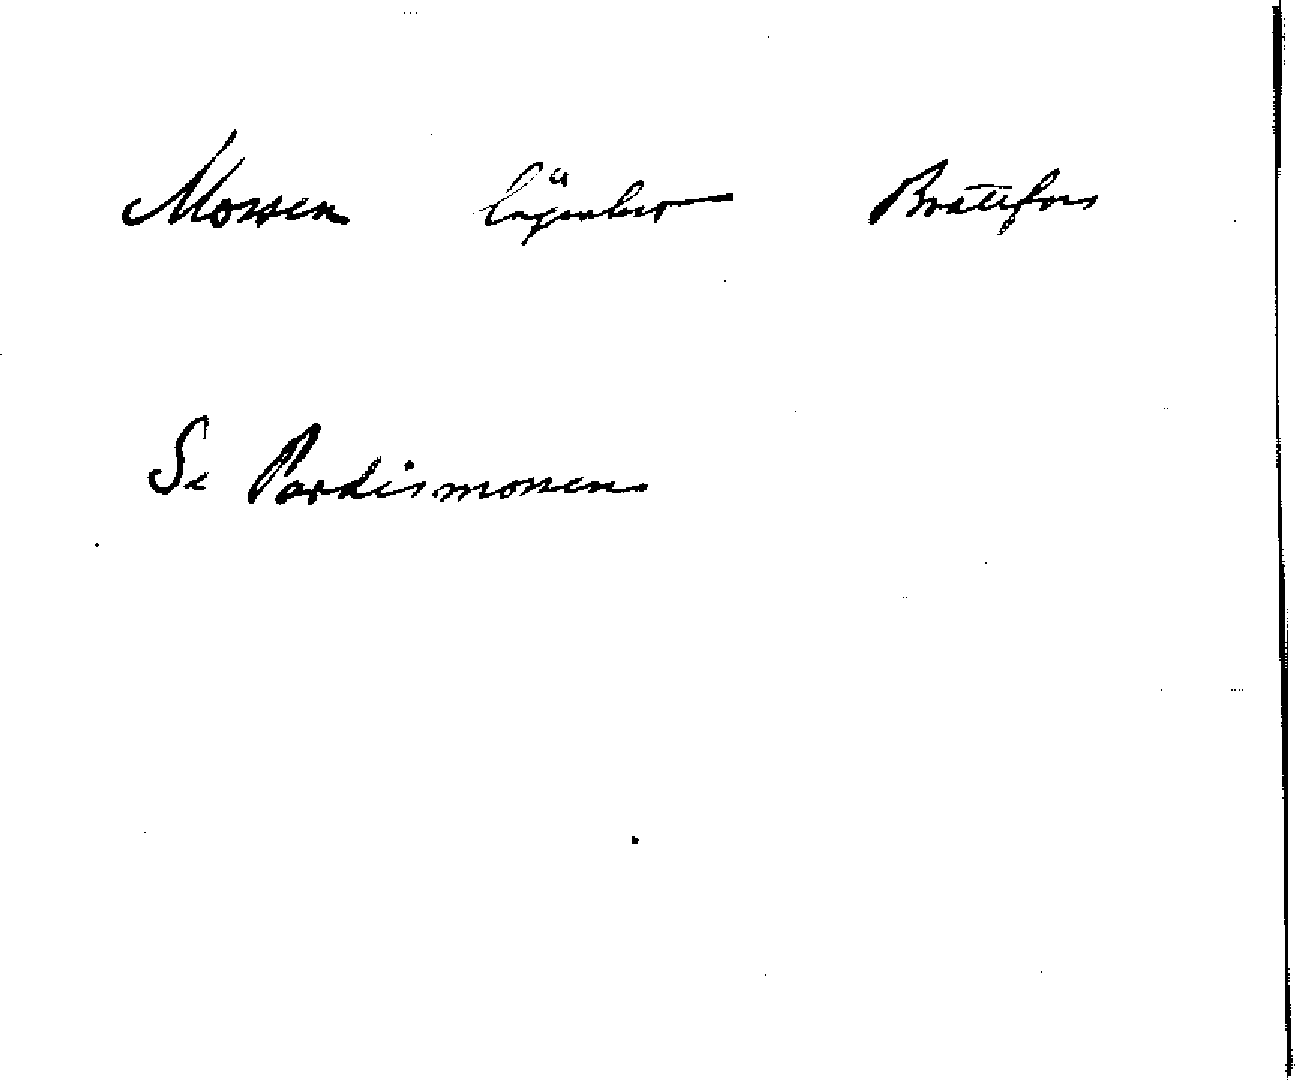 Mossen lägenhet Brattfors
Se Pardismossen